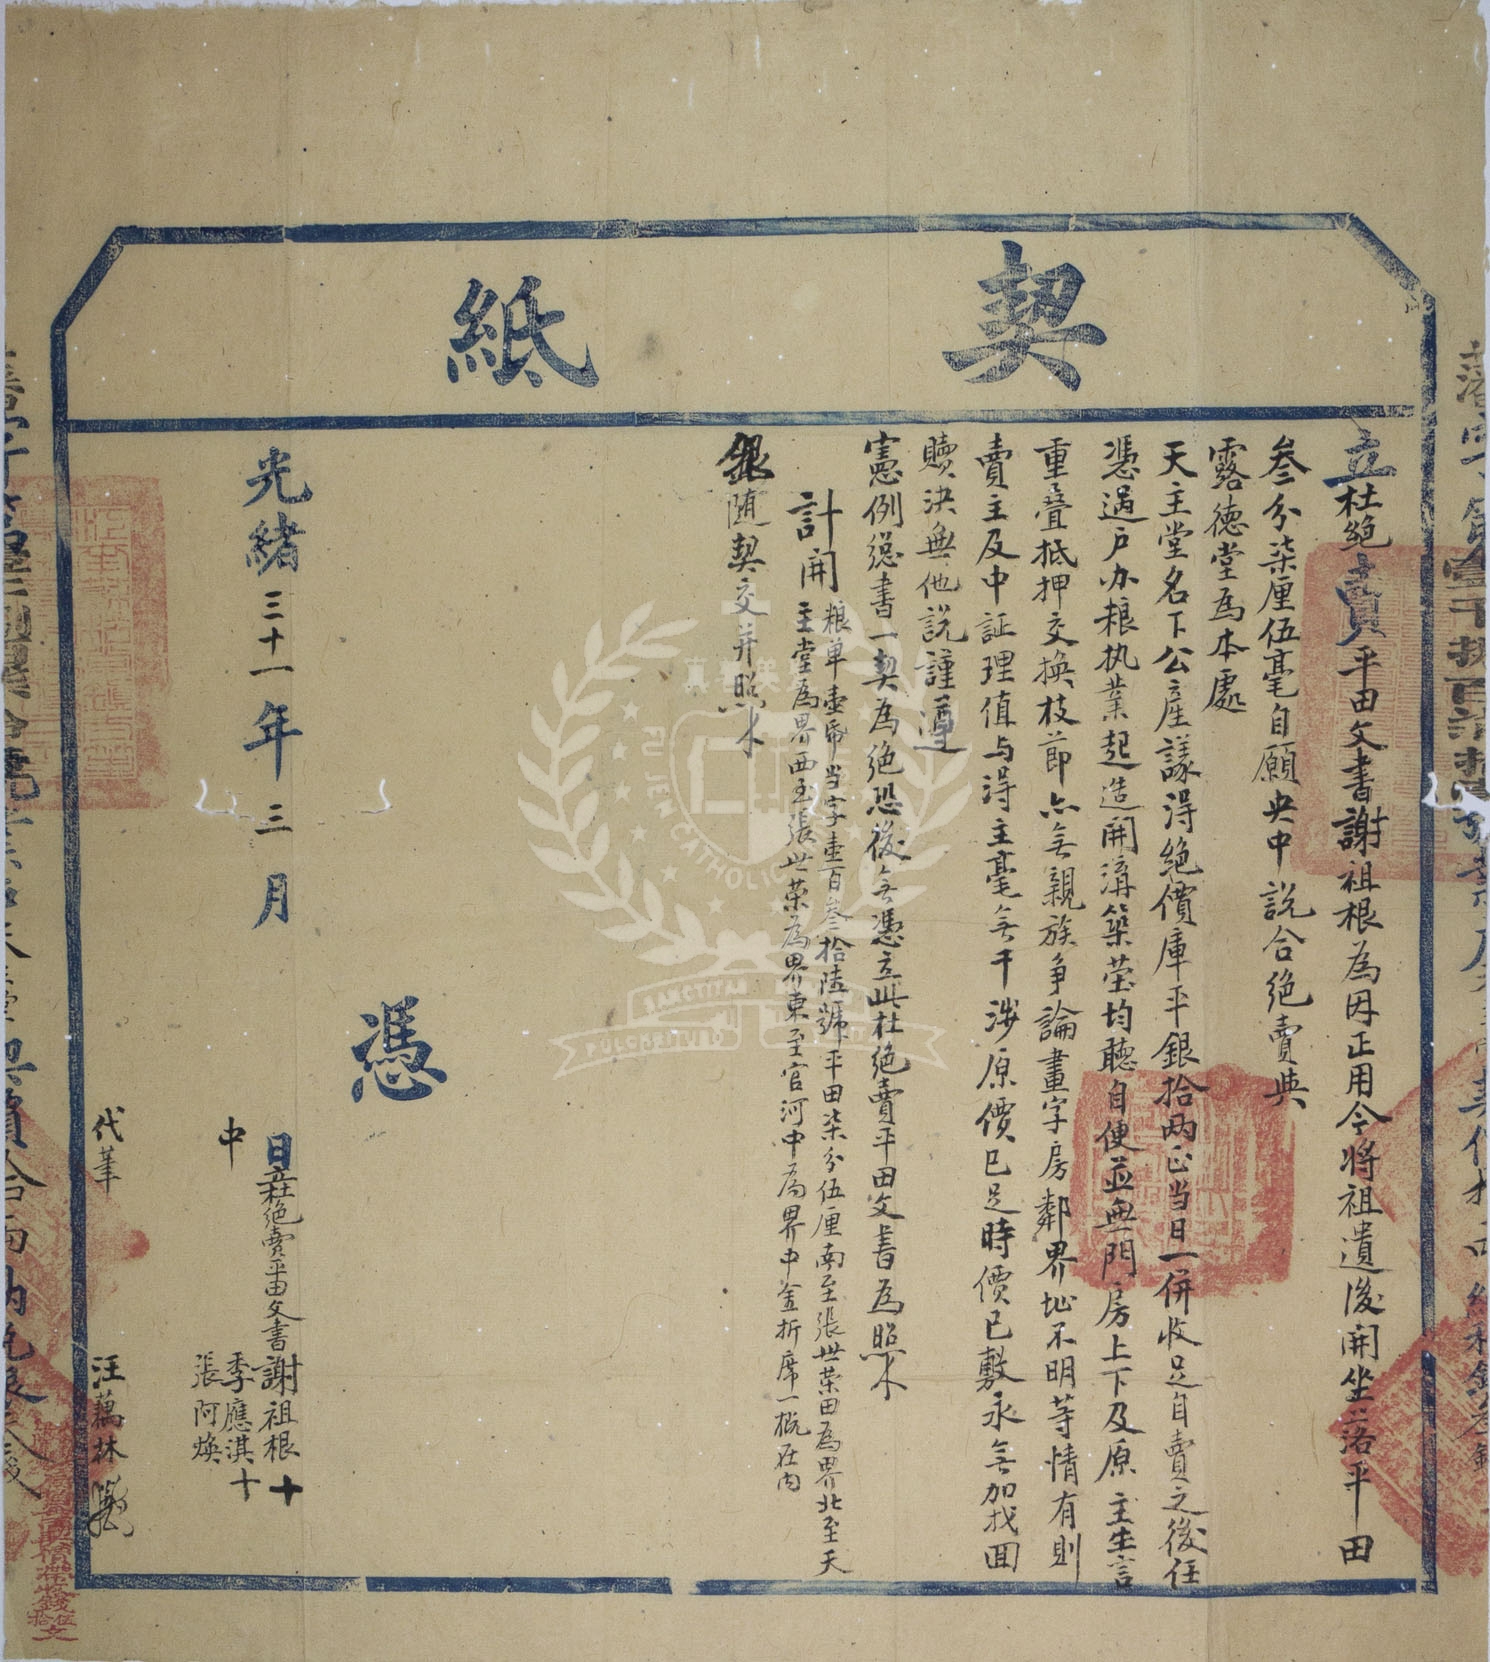 契紙
立杜絕賣平田文書謝祖根為因正用今將祖遺後開坐落平田
叁分柒厘伍毫自願央中説合絕賣與
露德堂為本處
天主堂名下公產議得絕價庫平銀拾两正当日一併收足自賣之後任
憑過户办粮执業起造開溝築塋均聽自便並無門房上下及原主生言
重叠抵押交換枝節亦无親族争論畫字房鄰界址不明等情有則
賣主及中証理值与得主毫无干涉原價已足時價已敷永无加找囬
贖決無他説謹遵
憲例總書一契為絕恐後无憑立此杜絕賣平田文書為照
計開 粮单壹帋当字壹百叁拾陆號平田柒分伍厘南至張世荣田為界北至天
主堂為界西至張世荣為界東至官河中為界中金折席一概在内
銀随契交并照
憑
光緒三十一年三月 日立杜絕賣平田文書謝祖根十
中 季應淇十
張阿煥
代筆 汪藕林